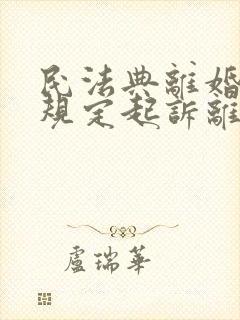 民法典離婚
規定起訴離
盧瑞華